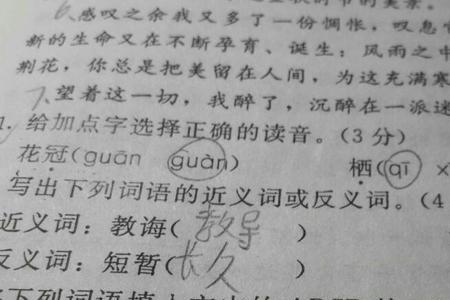 6、感叹之余我又多了一份惆怅,叹息
新的生命又在不断孕育、诞生;风雨之中
荆花,你总是把美留在人间,为这充满寒
7、望着这一切,我醉了,沉醉在一派迷
1. 给加点字选择正确的读音。(3 分)
花冠(guān guàn) 栖(qī ×
写出下列词语的近义词或反义词。(4
近义词:教诲( 教导 )
反义词:短暂( 长久 )